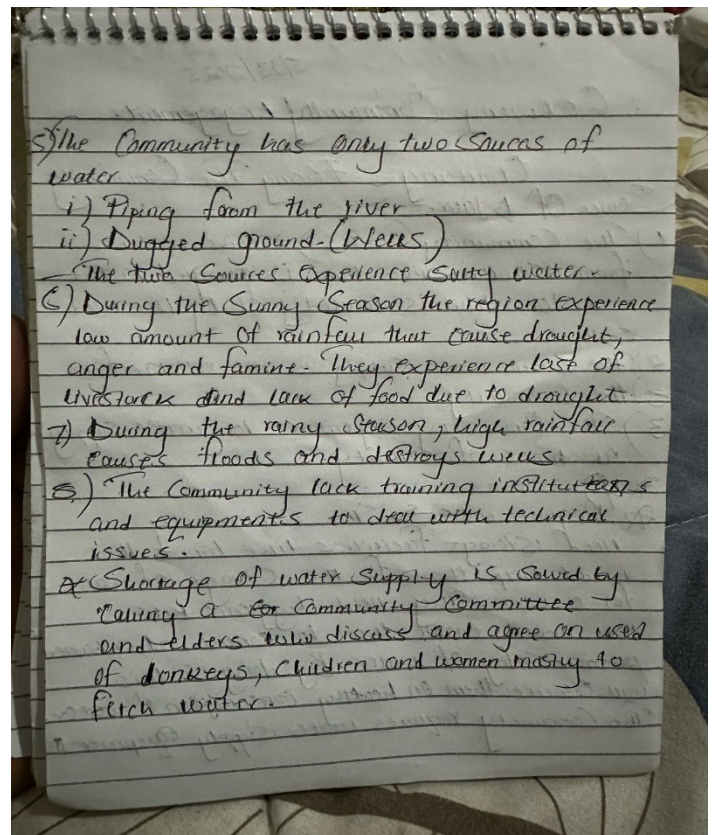 5) The Community has only two Sources of
water
i) Piping from the river
ii) Dugged ground - (Wells)
The two Sources Experience Salty water.
6) During the Sunny Season the region experience
low amount of rainfall that cause drought,
anger and famine. They experience lost of
livestock and lack of food due to drought
7) During the rainy Season, high rainfall
causes floods and destroys wells.
8.) The Community lack training institutions
and equipments to deal with technical
issues.
Shortage of water Supply is Solved by
Calling a Community Committee
and elders who discuss and agree on used
of donkeys, Children and women mostly to
fetch water.